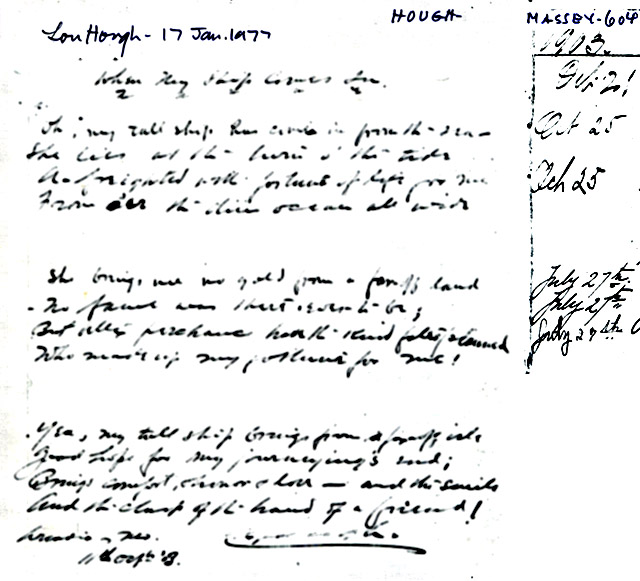 HOUGH
Lon Hough - 17 Jan. 1977
When My Ship Comes In.
Oh, my tall ship has come in from the sea -
She lies at the turn o' the tide
A-freighted with fortunes of life for me
From o'er the dim ocean all wide
She brings me no gold from a far-off land
- No fame was there ever to be;
But after perchance hath the kind fates planned
Who made up my fortune for me!
Yea, my tall ship brings from a far-off isle
Good hope for my journeying's end;
Brings comfort, honor & love - and the smile
And the clasp of the hand of a friend!
Arcadia, Neb.
11th Oct '13.
MASSEY-604
1903.
Oct. 21
Oct 25
Oct 25
July 27th
July 27th
July 27th